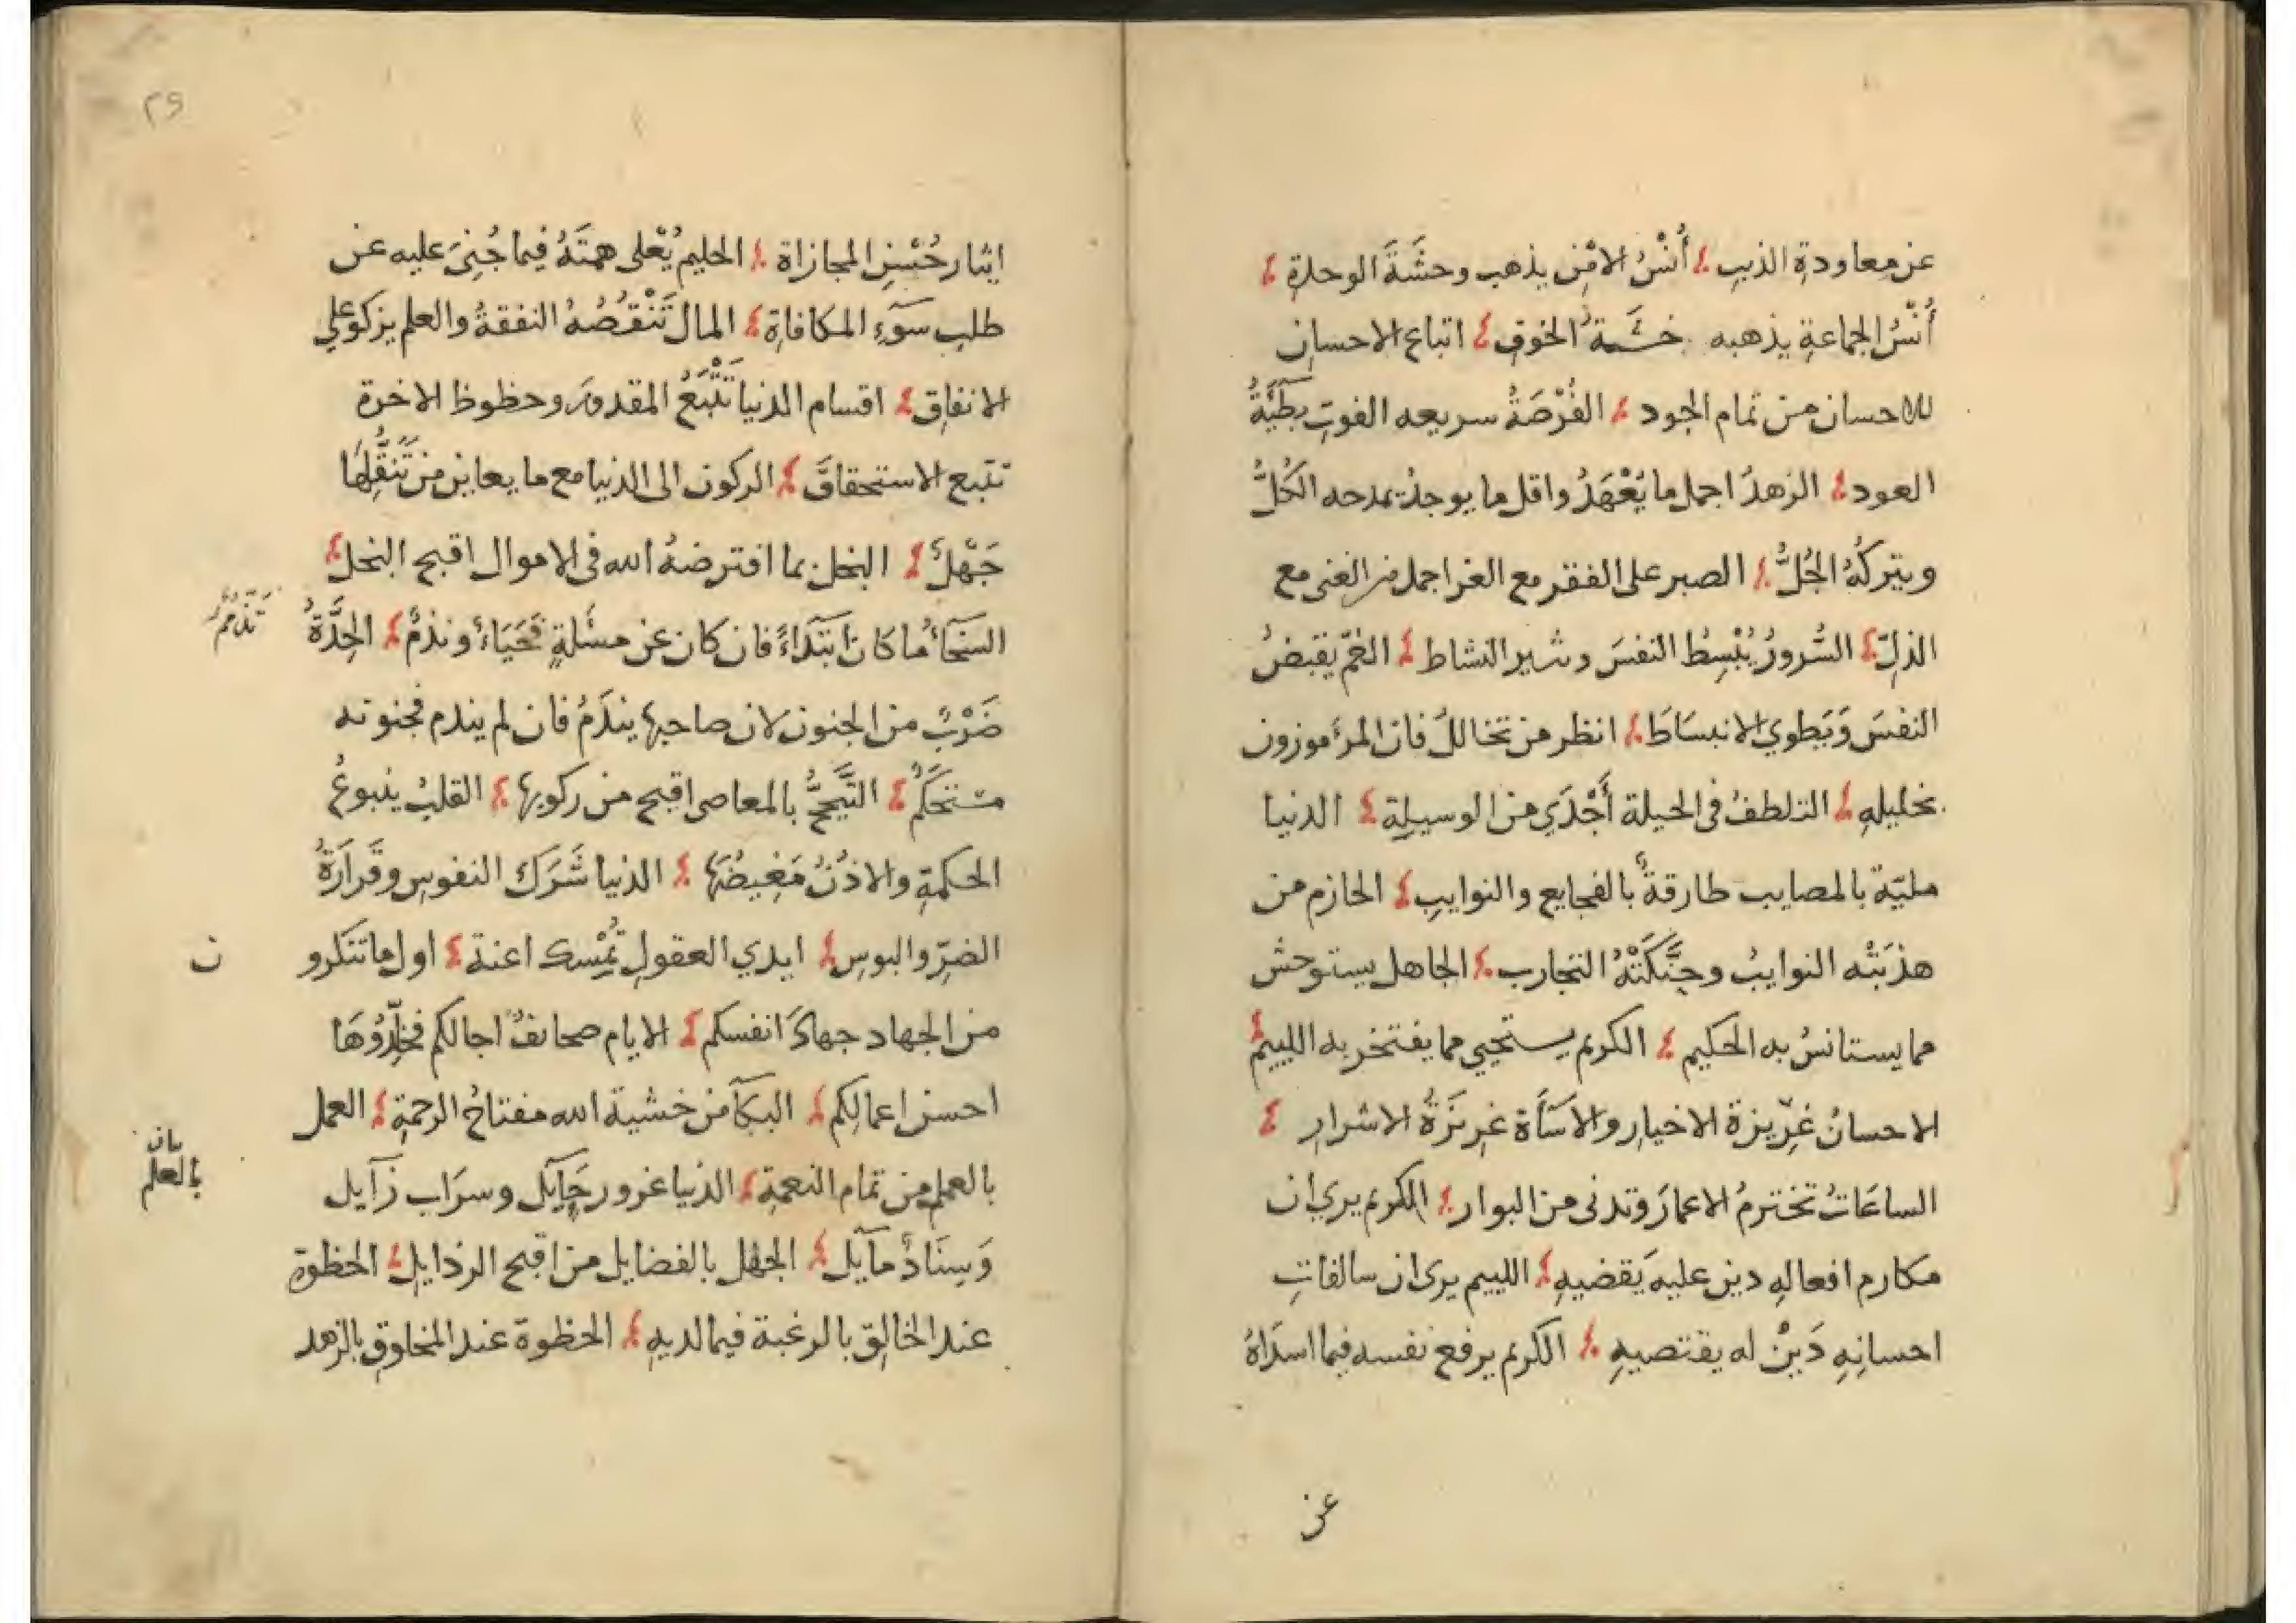 عن معاودة الذنب أُنْسُ الامْنِ يذهب وحشَةَ الوحدةِ
أُنْسُ الجماعةِ يذهبه خشية الخوفِ اتباع الاحسان
للاحسان من تمام الجود الفُرْصَةُ سريعه الفوتِ بطيَّةُ
العود الزهدُ اجمل ما يُعْهَدُ واقل ما يوجدُ يمدحه الكُلُّ
ويتركُهُ الجُلُّ الصبر على الفقر مع العز اجمل من الغنى مع
الذلِّ السُّرورُ يُبْسِطُ النفسَ ويثير النشاط الغمّ يقبضُ
النفسَ وَيَطوي الانبسَاطَ انظر من تخاللُ فان المرأ موزون
بخليلهِ التلطفُ فى الحيلة أَجْدَي من الوسيلة الدنيا
مليّة بالمصايب طارقةٌ بالفجايع والنوايبِ الحازم من
هذبَتْه النوايبُ وحنَّكَتْهُ التجارب الجاهل يستوحش
مما يستانسُ به الحكيم الكريم يستحيي مما يفتخر به اللييم
الاحسانُ غَرِّيزة الاخيار والاسَأَة غريزَةُ الاشرارِ
الساعَاتُ تخترمُ الاعمارَ وتدنى من البوار الكريم يري ان
مكارم افعالهِ دين عليه يَقضيهِ اللييم يرى ان سالفاتِ
احسانِهِ دَيْنٌ له يقتضيهِ الكريم يرفع نفسه فيما اسدَاهُ
عن
٢٩
ايثار حُسْنِ المجازاة الحليم يُعْلى همتَهُ فيما جُنِىَ عليه عن
طلب سَوَءِ المكافاةِ المال تَنْقُصُهُ النفقةُ والعلم يزكو على
الانفاقِ اقسام الدنيا تَتْبَعُ المقدورَ وحظوظ الاخرة
تتبع الاستحقاقَ الركون الى الدنيا مع ما يعاين من تَنَقُّلِهَا
جَهْلٌ البخل بما افترضهُ الله فى الاموال اقبح البخل
السَخَأُ ما كان ابتَدَاءً فان كان عن مسئلةٍ فَحَيَاءٌ وتذمٌ الحِدَّةُ
تَذَمُّمٌ
ضَرْبٌ من الجنون لان صاحبها يندَمُ فان لم يندم فجنونه
مستحكَمٌ التَّبَجُّحُ بالمعاصى اقبح من ركوبها القلبُ ينبوعُ
الحكمةِ والاذُنُ مَغِيضُهَا الدنيا شَرَك النفوسِ وقَرارَةُ
الضرِّ والبوسِ ايدي العقولِ تُمْسك اعنة اول ما تنكرو
ن
من الجهاد جهادَ انفسكم الايام صحائفُ اجالكم فخَلِّدُوُهَا
احسن اعمالِكم البكآ من خشية الله مفتاحُ الرحمةِ العمل
بالعمل من تمام النعمةِ الدنيا غرور حَآيل وسرَاب زآيل
بيان
بالعلم
وَسِنَادٌ مآيل الجهْل بالفضايل من اقبح الرذايلِ الحظوة
عند الخالِقِ بالرغبة فيما لديهِ الحظوة عند المخلوق بالزهد